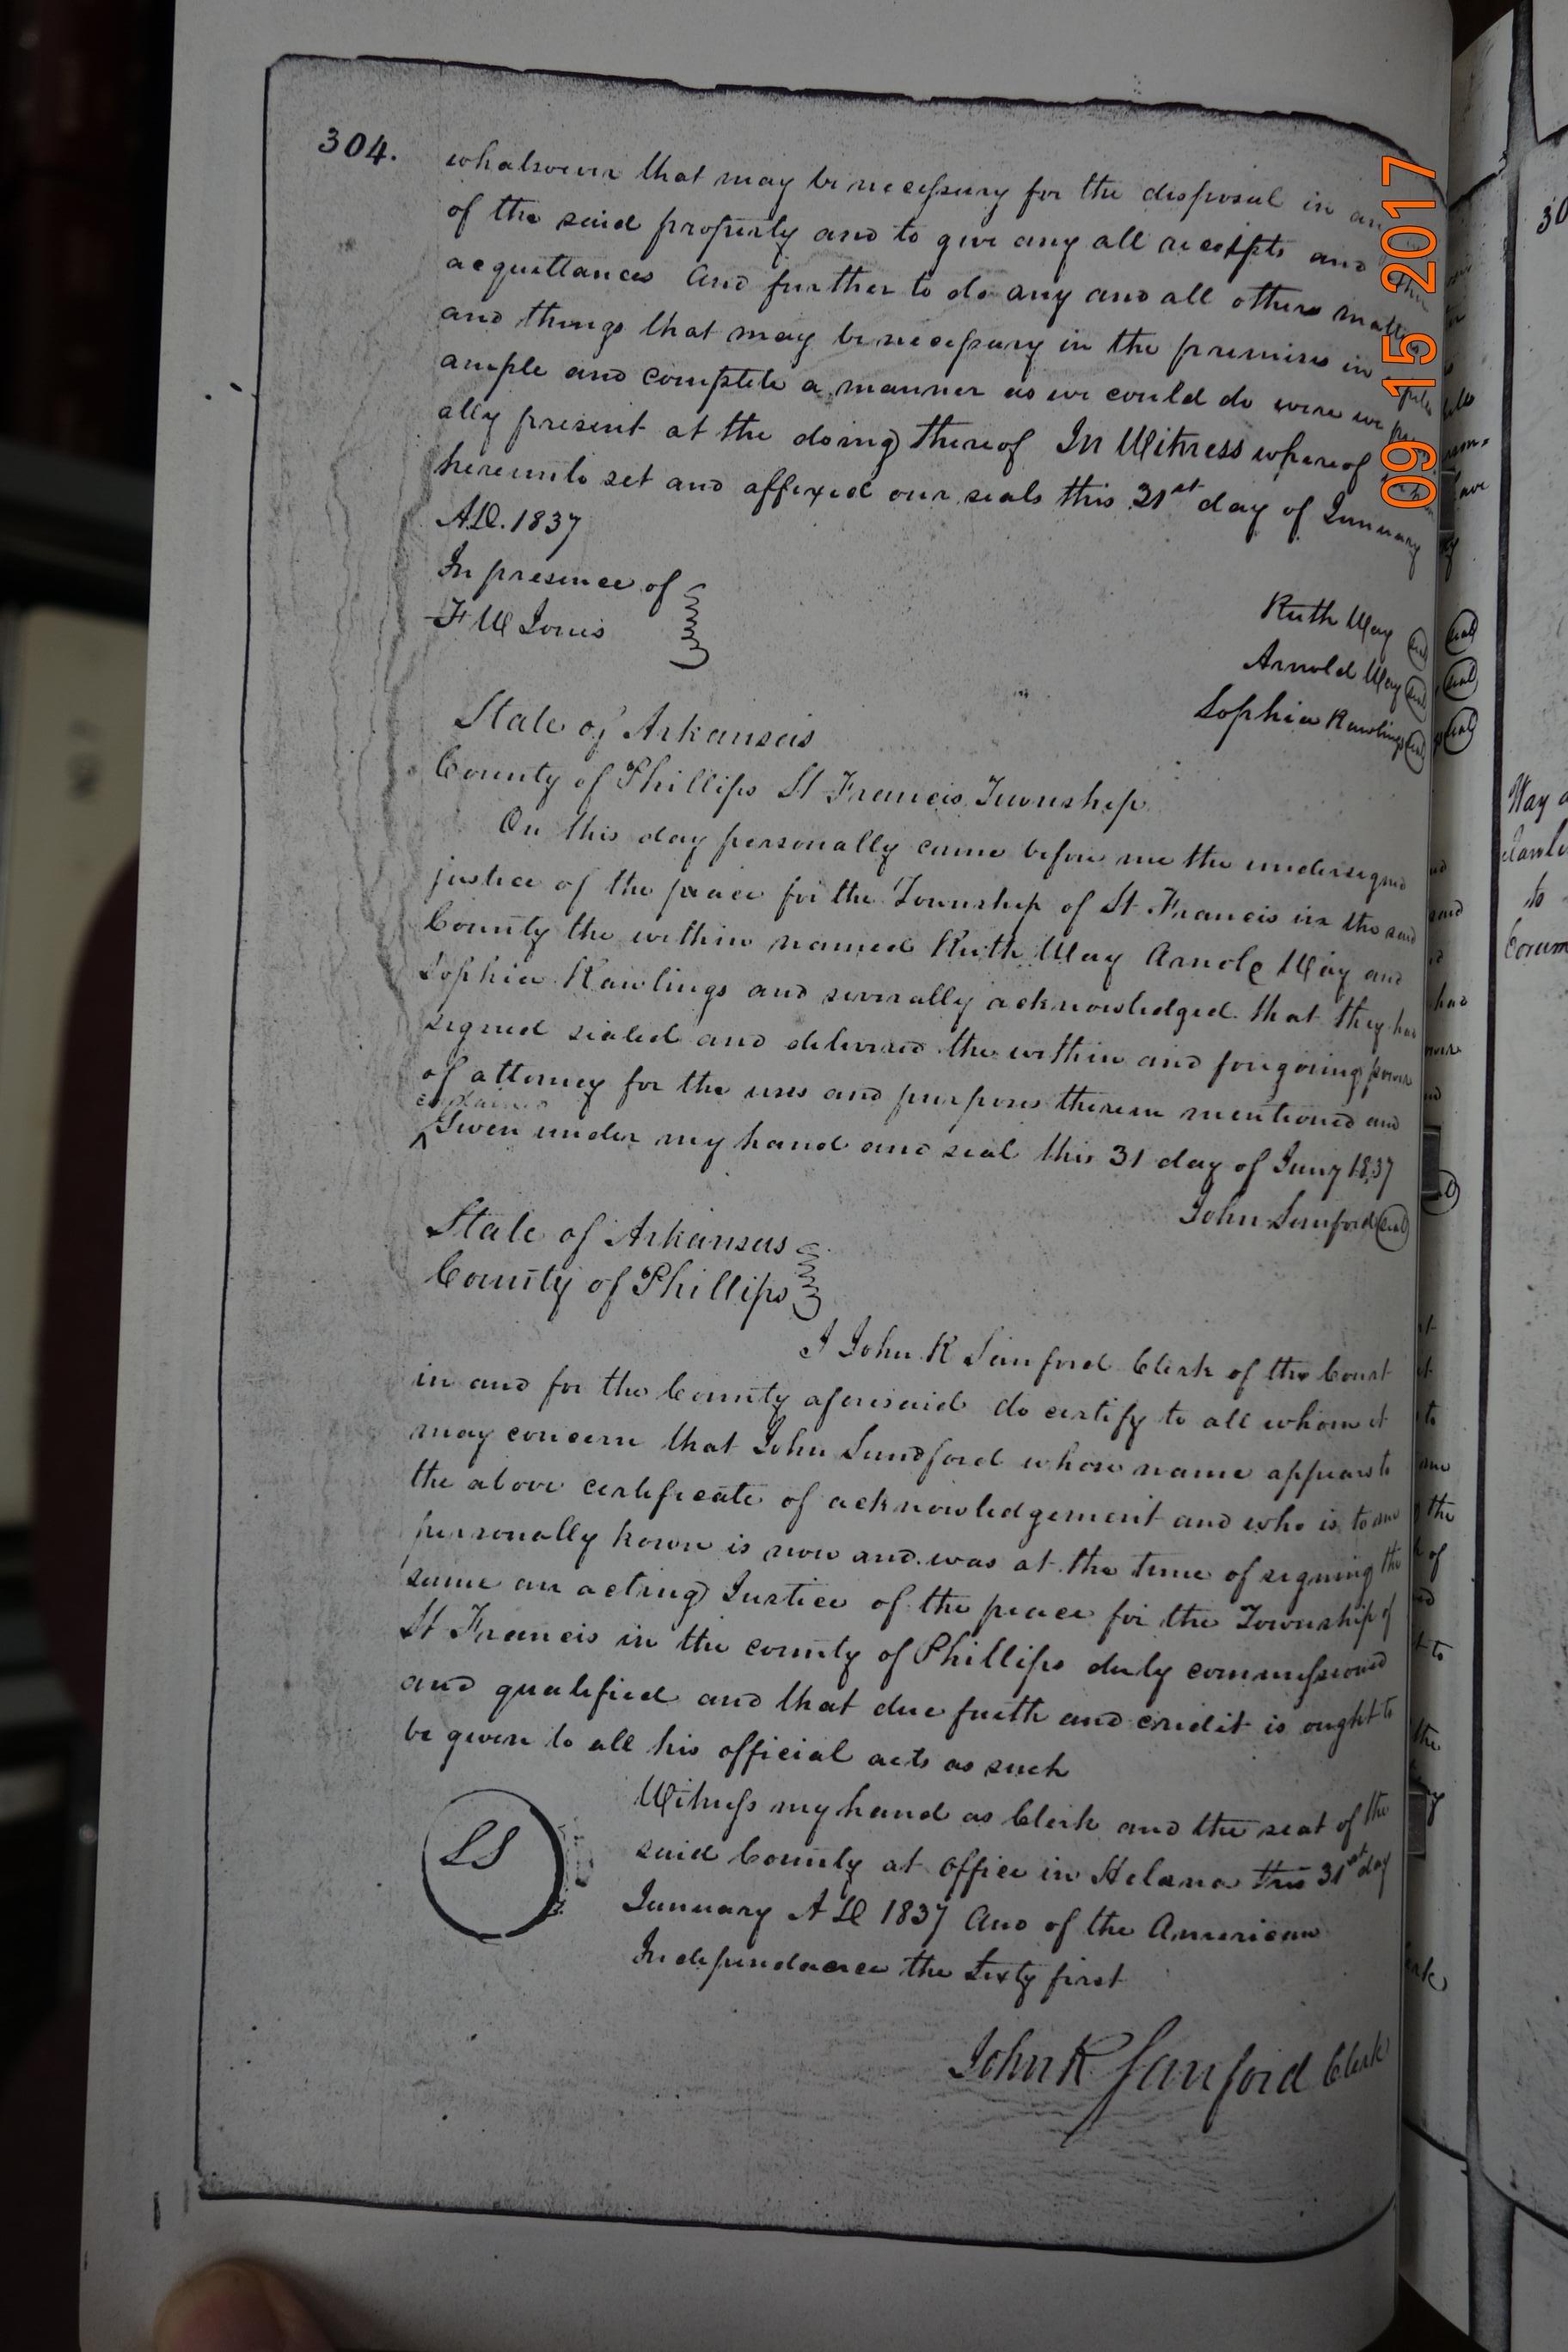 304.
whatsoever that may be necessary for the disposal in
of the said property and to give any all receipts and
acquittances And further to do any and all others matters
and things that may be necessary in the premises in
ample and complete a manner as we could do were we
ally present at the doing thereof In Witness whereof
hereunto set and affixed our seals this 31st day of January
AD. 1837
In presence of
F W Jones
Ruth Way seal
Arnold Way seal
Sophia Rawlings seal
State of Arkansas
County of Phillips St Francis Township
On this day personally came before me the undersigned
justice of the peace for the Township of St Francis in the said
County the within named Ruth Way Arnold Way and
Sophia Rawlings and severally acknowledged that they had
signed sealed and delivered the within and foregoing power
of attorney for the uses and purposes therein mentioned and
explained
Given under my hand and seal this 31 day of Jany 1837
John Sanford seal
State of Arkansas
County of Phillips
I John R Sanford Clerk of the Court
in and for the County aforesaid do certify to all whom it
may concern that John Sandford whose name appears to
the above certificate of acknowledgement and who is to me
personally kown is now and was at the time of signing the
same an acting Justice of the peace for the Township of
St Francis in the county of Phillips duly commissioned
and qualified and that due faith and credit is ought to
be given to all his official acts as such
LS
Witness my hand as Clerk and the seal of the
said County at office in Helena this 31st day
January AD 1837 And of the American
Independence the Sixty first
John R Sanford Clerk
09 15 2017
Way
to